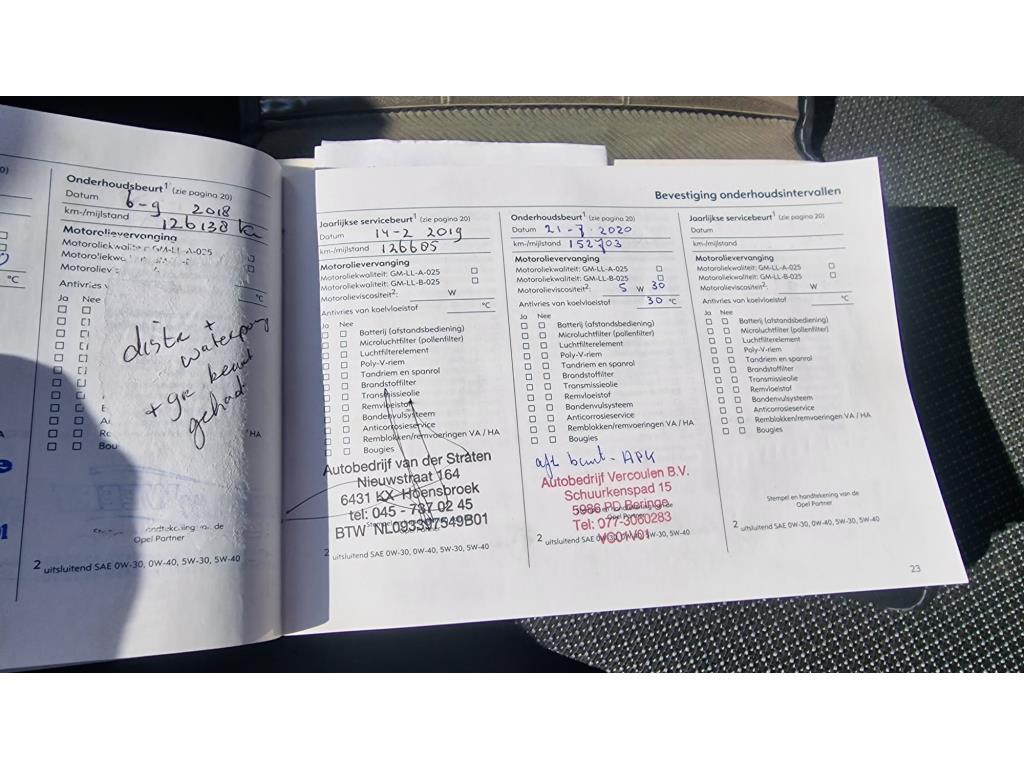 Onderhoudsbeurt¹ (zie pagina 20)
Datum 6-9 2018
km-/mijlstand 126138 km
Motorolievervanging
Antivries
°C
Ja Nee
distr +
waterpomp
+ gr beurt
gehad
/ HA
Opel Partner
2 uitsluitend SAE 0W-30, 0W-40, 5W-30, 5W-40
Bevestiging onderhoudsintervallen
Jaarlijkse servicebeurt¹ (zie pagina 20)
Datum 14-2 2019
km-/mijlstand 126685
Motorolievervanging
Motoroliekwaliteit: GM-LL-A-025
Motoroliekwaliteit: GM-LL-B-025
Motorolieviscositeit²: W
Antivries van koelvloeistof °C
Ja Nee
Batterij (afstandsbediening)
Microluchtfilter (pollenfilter)
Luchtfilterelement
Poly-V-riem
Tandriem en spanrol
Brandstoffilter
Transmissieolie
Remvloeistof
Bandenvulsysteem
Anticorrosieservice
Remblokken/remvoeringen VA / HA
Bougies
Autobedrijf van der Straten
Nieuwstraat 164
6431 KX Hoensbroek
tel: 045 - 737 02 45
BTW NL093397549B01
2 uitsluitend SAE 0W-30, 0W-40, 5W-30, 5W-40
Onderhoudsbeurt¹ (zie pagina 20)
Datum 21-7-2020
km-/mijlstand 152703
Motorolievervanging
Motoroliekwaliteit: GM-LL-A-025
Motoroliekwaliteit: GM-LL-B-025
Motorolieviscositeit²: 5 W 30
Antivries van koelvloeistof 30 °C
Ja Nee
Batterij (afstandsbediening)
Microluchtfilter (pollenfilter)
Luchtfilterelement
Poly-V-riem
Tandriem en spanrol
Brandstoffilter
Transmissieolie
Remvloeistof
Bandenvulsysteem
Anticorrosieservice
Remblokken/remvoeringen VA / HA
Bougies
afl beurt - APK
Autobedrijf Vercoulen B.V.
Schuurkenspad 15
5986 PD Beringe
Opel Partner
Tel: 077-3060283
2 uitsluitend SAE 0W-30, 0W-40, 5W-30, 5W-40
Jaarlijkse servicebeurt¹ (zie pagina 20)
Datum
km-/mijlstand
Motorolievervanging
Motoroliekwaliteit: GM-LL-A-025
Motoroliekwaliteit: GM-LL-B-025
Motorolieviscositeit²: W
Antivries van koelvloeistof °C
Ja Nee
Batterij (afstandsbediening)
Microluchtfilter (pollenfilter)
Luchtfilterelement
Poly-V-riem
Tandriem en spanrol
Brandstoffilter
Transmissieolie
Remvloeistof
Bandenvulsysteem
Anticorrosieservice
Remblokken/remvoeringen VA / HA
Bougies
Stempel en handtekening van de
Opel Partner
2 uitsluitend SAE 0W-30, 0W-40, 5W-30, 5W-40
23